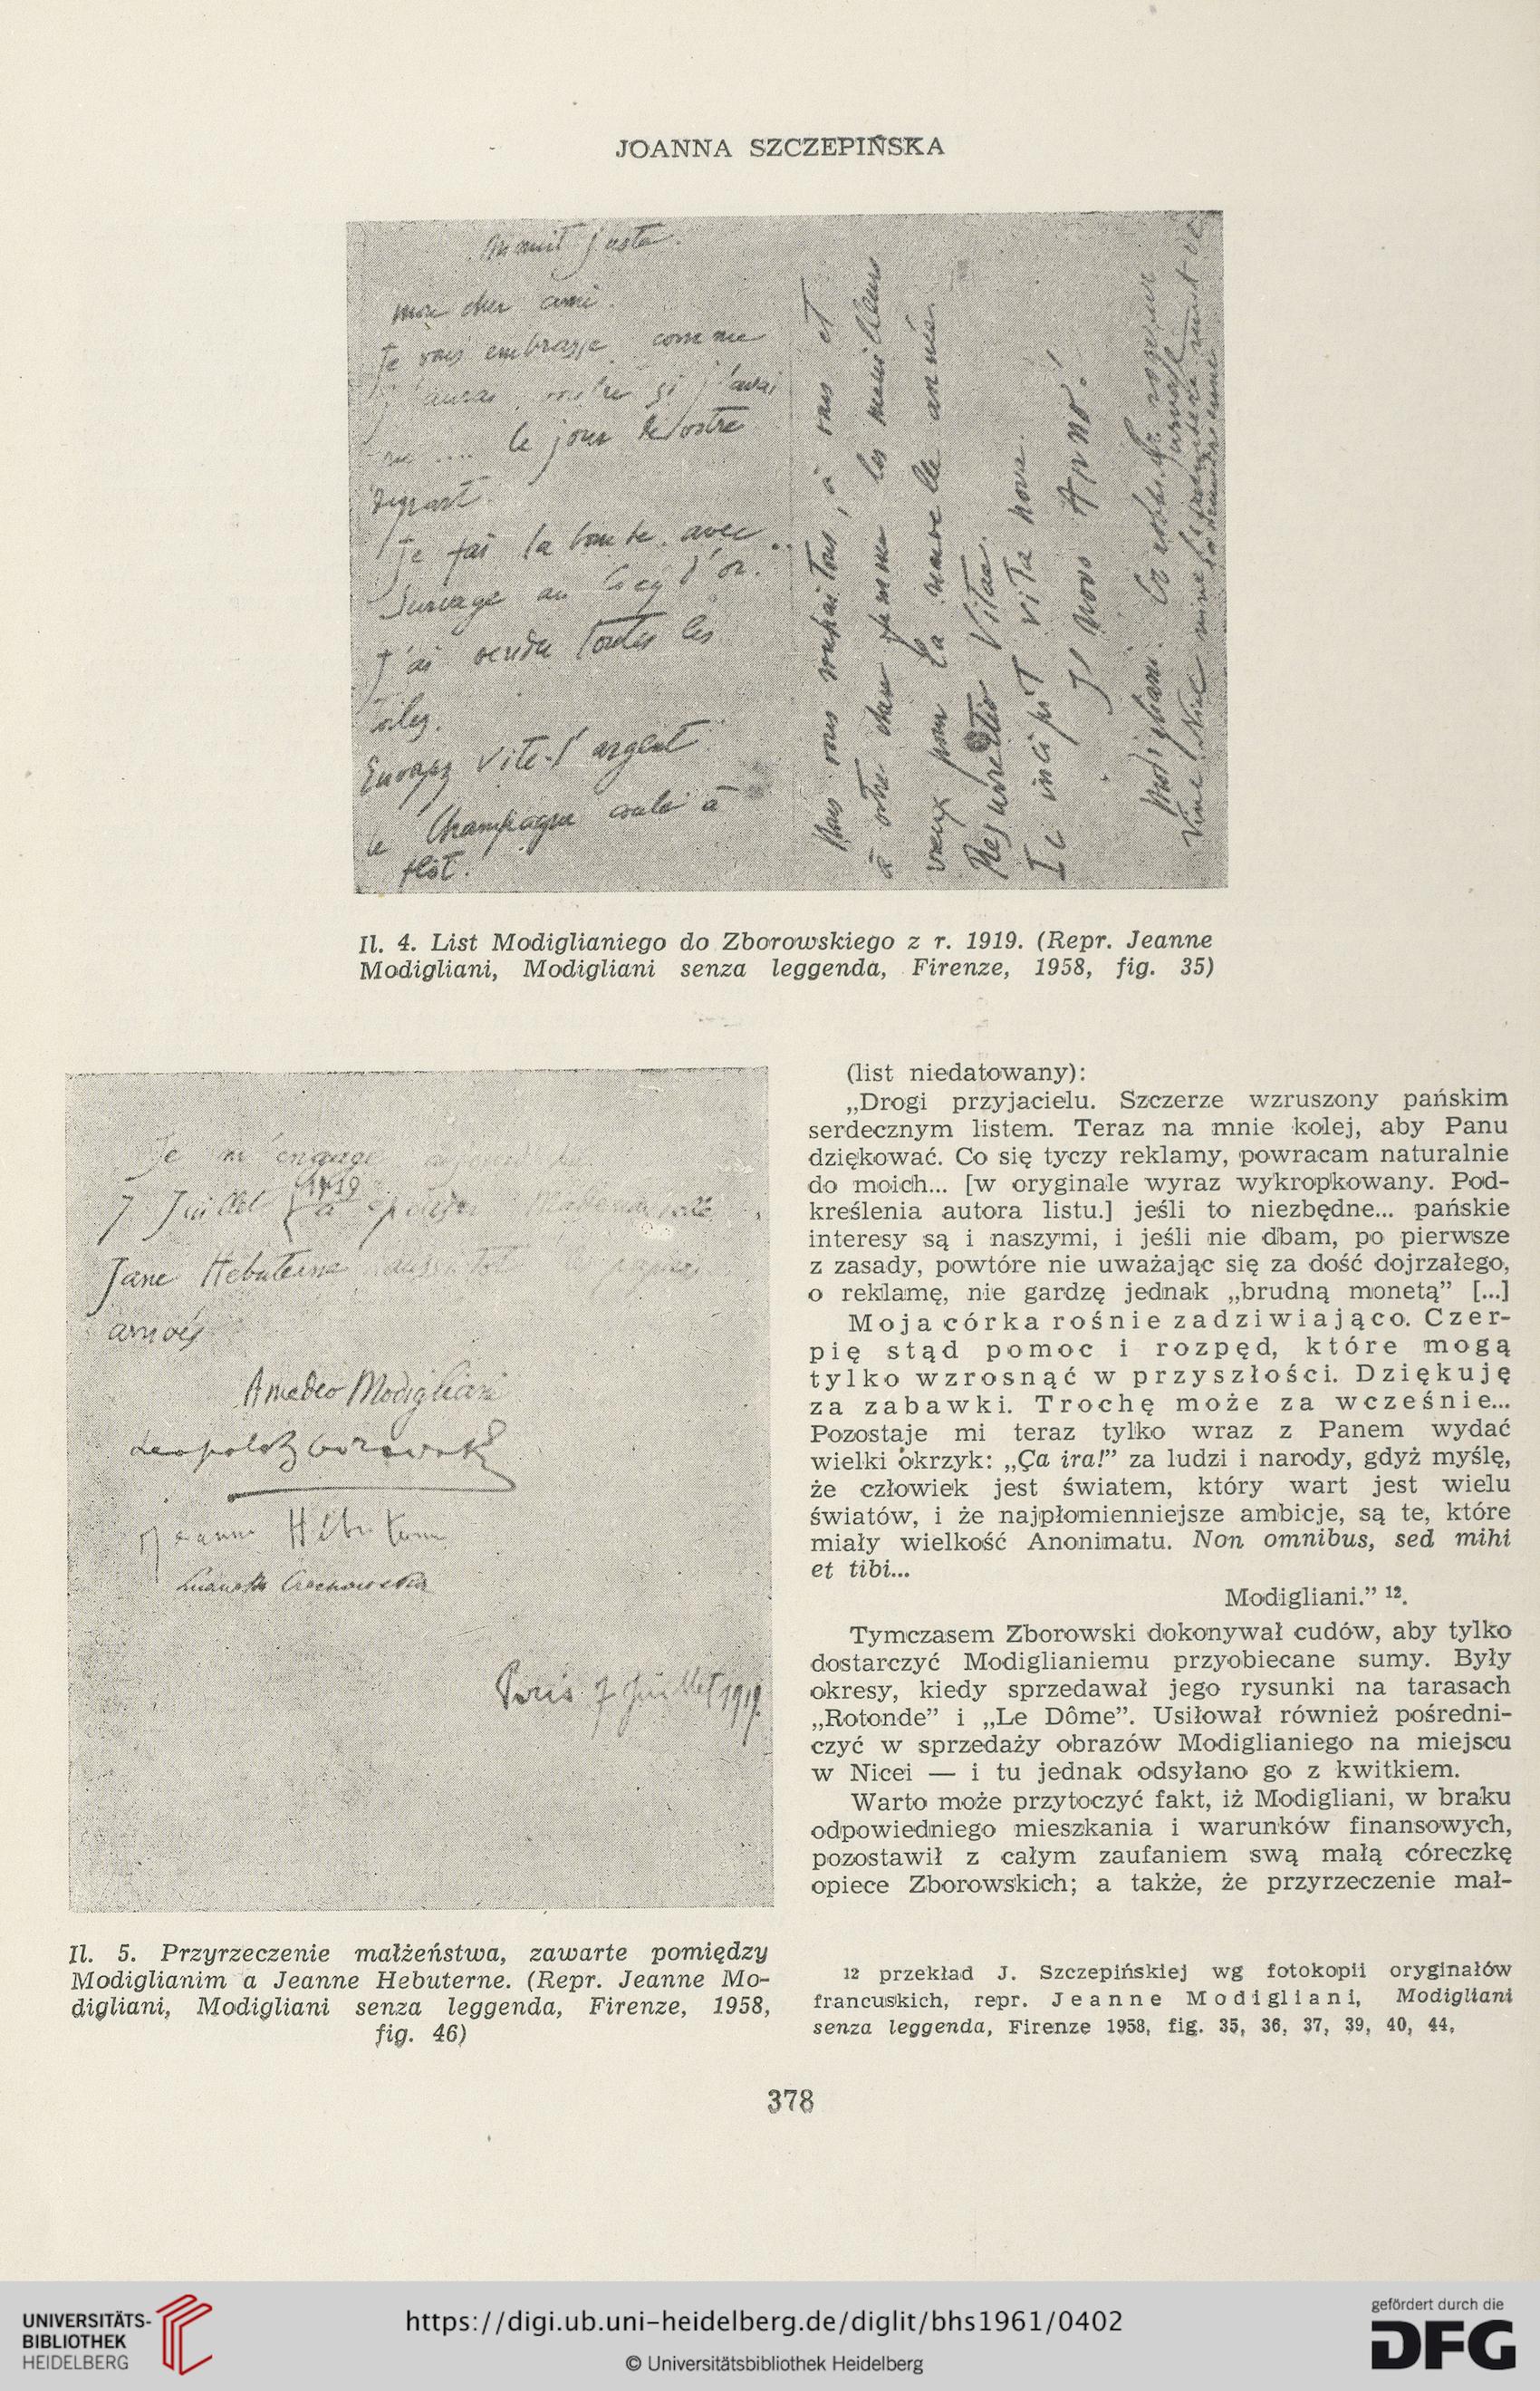 JOANNA SZCZEPIŃSKA
minuit juste.
mon cher ami.
Je vous embrasse comme
le jour de votre
depart.
Je fais la bombe avec
Survage au Coq d'or.
J'ai vendu toutes les
toiles.
Envoyez vite l'argent
le Champagne coule à
flôt.
Nous vous souhaitons, à vous et
à votre chère femme les meilleurs
vœux pour la nouvelle année.
Resurectio Vitae.
Ic incipit vita nova.
Il novo Anno!
Modigliani.
Il. 4. List Modiglianiego do Zborowskiego z r. 1919. (Repr. Jeanne
Modigliani, Modigliani senza leggenda, Firenze, 1958, fig. 35)
Je m'engage aujourd'hui
7 Juillet 1919 à épouser Mademoiselle
Jane Hebuterne aussitôt les papiers
arrivés
Amedeo Modigliani
Leopold Zborowski
Jeanne Hébuterne
Lunia Czechowska
Paris 7 Juillet 1919
Il. 5. Przyrzeczenie małżeństwa, zawarte pomiędzy
Modiglianim a Jeanne Hebuterne. (Repr. Jeanne Mo-
digliani, Modigliani senza leggenda, Firenze, 1958,
fig. 46)
(list niedatowany):
„Drogi przyjacielu. Szczerze wzruszony pańskim
serdecznym listem. Teraz na mnie kolej, aby Panu
dziękować. Co się tyczy reklamy, powracam naturalnie
do moich... [w oryginale wyraz wykropkowany. Pod-
kreślenia autora listu.] jeśli to niezbędne... pańskie
interesy są i naszymi, i jeśli nie dbam, po pierwsze
z zasady, powtóre nie uważając się za dość dojrzałego,
o reklamę, nie gardzę jednak „brudną monetą” [...]
Moja córka rośnie zadziwiająco. Czer-
pię stąd pomoc i rozpęd, które mogą
tylko wzrosnąć w przyszłości. Dziękuję
za zabawki. Trochę może za wcześnie...
Pozostaje mi teraz tylko wraz z Panem wydać
wielki okrzyk: „Ça ira!” za ludzi i narody, gdyż myślę,
że człowiek jest światem, który wart jest wielu
światów, i że najpłomienniejsze ambicje, są te, które
miały wielkość Anonimatu. Non omnibus, sed mihi
et tibi...
Modigliani.” 12.
Tymczasem Zborowski dokonywał cudów, aby tylko
dostarczyć Modiglianiemu przyobiecane sumy. Były
okresy, kiedy sprzedawał jego rysunki na tarasach
„Rotonde” i „Le Dôme”. Usiłował również pośredni-
czyć w sprzedaży obrazów Modiglianiego na miejscu
w Nicei — i tu jednak odsyłano go z kwitkiem.
Warto może przytoczyć fakt, iż Modigliani, w braku
odpowiedniego mieszkania i warunków finansowych,
pozostawił z całym zaufaniem swą małą córeczkę
opiece Zborowskich; a także, że przyrzeczenie mał-
12 przekład J. Szczepińskiej wg fotokopii oryginałów
francuskich, repr. Jeanne Modigliani, Modigliani
senza leggenda, Firenze 1958, fig. 35, 36, 37, 39, 40, 44,
378
UNIVERSITÄTS-
BIBLIOTHEK
HEIDELBERG
https://digi.ub.uni-heidelberg.de/diglit/bhs1961/0402
© Universitätsbibliothek Heidelberg
gefördert durch die
DFG